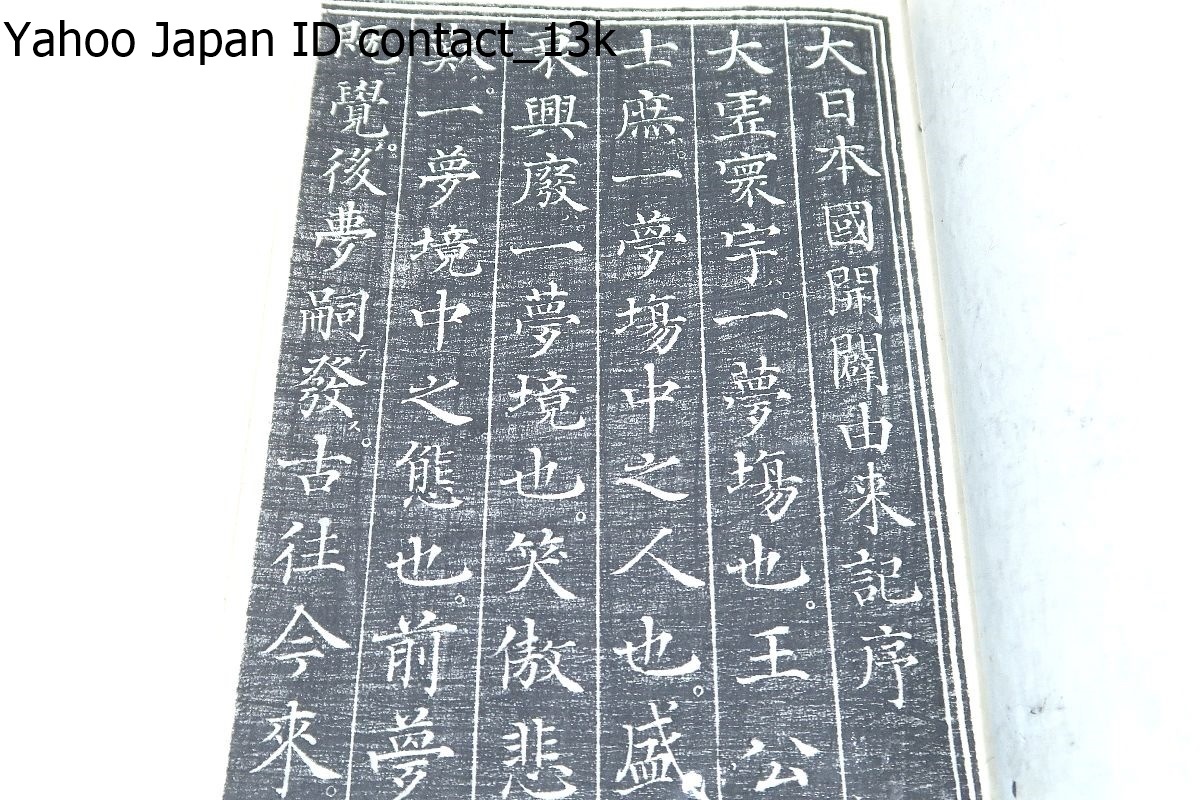 Yahoo Japan ID contact_13k
大日本國開闢由来記序
大虛寰宇一夢塲也。王公
士庶。一夢塲中之人也。盛
衰興廢一夢境也。笑傲悲
歎。一夢境中之態也。前夢
既覺。後夢嗣發ス。古往今來。